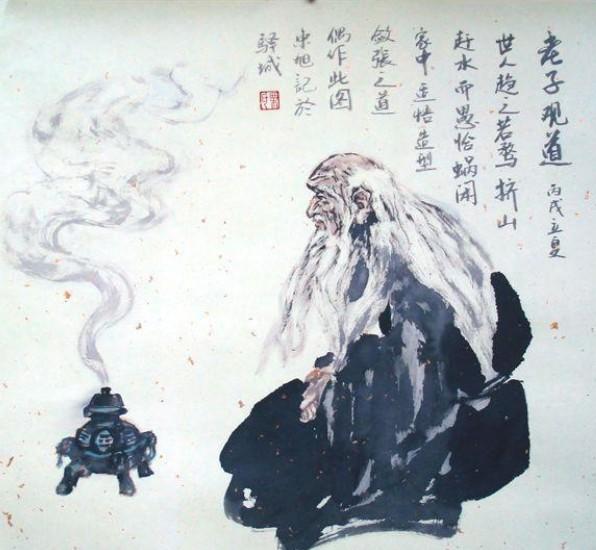 老子观道 丙戌立夏
世人趋之若鹜挤山
赶水而愚恰蜗闲
家中 悟造型
敛张之道
偶作此图
旭記於
驿城